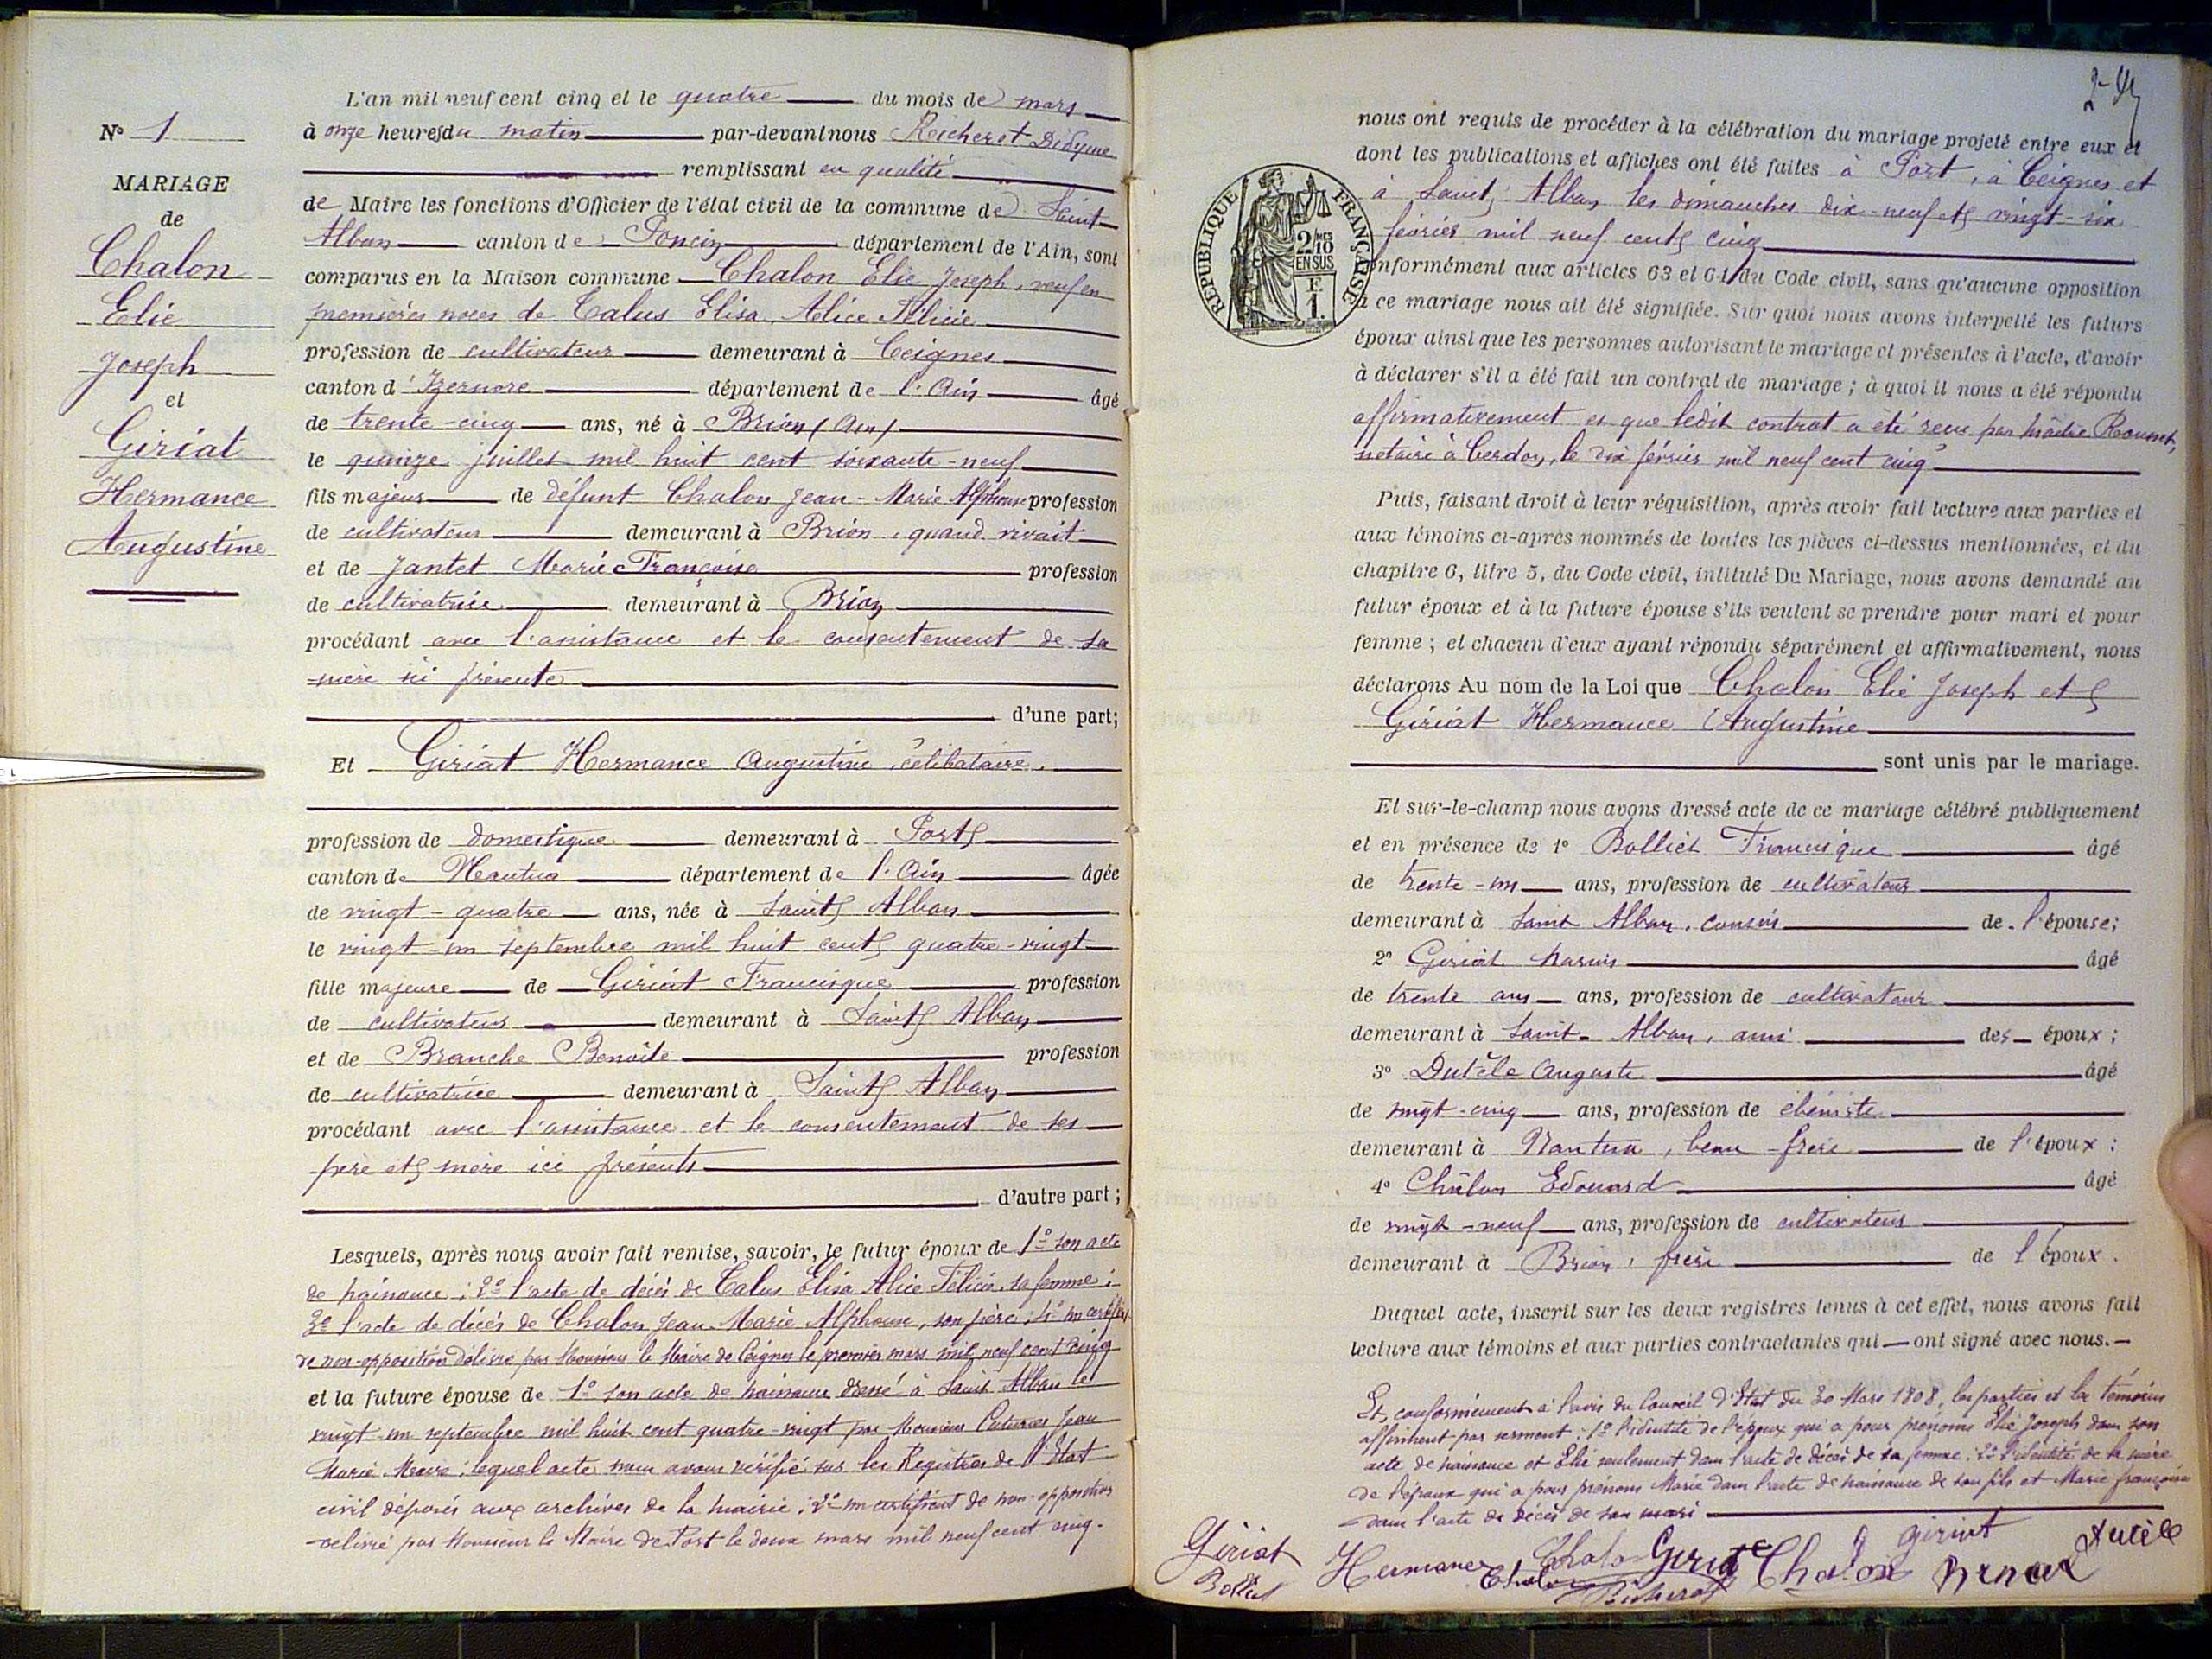 L'an mil neuf cent cinq et le quatre du mois de mars
à onze heures du matin par-devant nous Richerot Didyme
remplissant en qualité
de Maire les fonctions d'Officier de l'état civil de la commune de Saint
Alban canton de Poncin département de l'Ain, sont
comparus en la Maison commune Chalon Elie Joseph, veuf en
premières noces de Calus Elisa Alice Félicie
profession de cultivateur demeurant à Ceignes
canton d'Izernore département de l'Ain âgé
de trente-cinq ans, né à Brion (Ain)
le quinze juillet mil huit cent soixante-neuf
fils majeur de défunt Chalon Jean-Marie Alphonse profession
de cultivateur demeurant à Brion, quand vivait
et de Jantet Marie Françoise profession
de cultivatrice demeurant à Brion
procédant avec l'assistance et le consentement de sa
mère ici présente
d'une part;
Et Giriat Hermance Augustine, célibataire.
profession de domestique demeurant à Port
canton de Nantua département de l'Ain âgée
de vingt-quatre ans, née à Saint Alban
le vingt-un septembre mil huit cent quatre-vingt
fille majeure de Giriat Francisque profession
de cultivateur demeurant à Saint Alban
et de Branche Benoîte profession
de cultivatrice demeurant à Saint Alban
procédant avec l'assistance et le consentement de ses
père et mère ici présents
d'autre part;
Lesquels, après nous avoir fait remise, savoir, le futur époux de 1º son acte
de naissance; 2º l'acte de décès de Calus Elisa Alice Félicie, sa femme;
3º l'acte de décès de Chalon Jean-Marie Alphonse, son père; 4º un certificat
de non-opposition délivré par Monsieur le Maire de Ceignes le premier mars mil neuf cent cinq
et la future épouse de 1º son acte de naissance dressé à Saint Alban le
vingt-un septembre mil huit cent quatre-vingt par Monsieur Jean
Marie Maire; lequel acte nous avons vérifié sur les Registres de l'Etat
civil déposés aux archives de la mairie; 2º un certificat de non-opposition
délivré par Monsieur le Maire de Port le deux mars mil neuf cent cinq.
Nº 1
MARIAGE
de
Chalon
Elie
Joseph
et
Giriat
Hermance
Augustine
nous ont requis de procéder à la célébration du mariage projeté entre eux et
dont les publications et affiches ont été faites à Port, à Ceignes et
à Saint Alban les dimanches dix-neuf et vingt-six
février mil neuf cent cinq
conformément aux articles 63 et 64 du Code civil, sans qu'aucune opposition
à ce mariage nous ait été signifiée. Sur quoi nous avons interpellé les futurs
époux ainsi que les personnes autorisant le mariage et présentes à l'acte, d'avoir
à déclarer s'il a été fait un contrat de mariage; à quoi il nous a été répondu
affirmativement et que ledit contrat a été reçu par Maître Rousset,
notaire à Cerdon, le dix février mil neuf cent cinq
RÉPUBLIQUE FRANÇAISE
2/10 MES
EN SUS
F.
1.
Puis, faisant droit à leur réquisition, après avoir fait lecture aux parties et
aux témoins ci-après nommés de toutes les pièces ci-dessus mentionnées, et du
chapitre 6, titre 5, du Code civil, intitulé Du Mariage, nous avons demandé au
futur époux et à la future épouse s'ils veulent se prendre pour mari et pour
femme; et chacun d'eux ayant répondu séparément et affirmativement, nous
déclarons Au nom de la Loi que Chalon Elie Joseph et
Giriat Hermance Augustine
sont unis par le mariage.
Et sur-le-champ nous avons dressé acte de ce mariage célébré publiquement
et en présence de 1º Bolliet Francisque âgé
de trente-un ans, profession de cultivateur
demeurant à Saint Alban, cousin de l'épouse;
2º Giriat Marius âgé
de trente ans ans, profession de cultivateur
demeurant à Saint-Alban, ami des époux;
3º Dutèle Auguste âgé
de vingt-cinq ans, profession de ébéniste
demeurant à Nantua, beau-frère de l'époux;
4º Châlon Edouard âgé
de vingt-neuf ans, profession de cultivateur
demeurant à Brion, frère de l'époux.
Duquel acte, inscrit sur les deux registres tenus à cet effet, nous avons fait
lecture aux témoins et aux parties contractantes qui ont signé avec nous.
Et, conformément à l'avis du Conseil d'Etat du 30 Mars 1808, les parties et les témoins
affirment par serment: 1º l'identité de l'époux qui a pour prénoms Elie Joseph dans son
acte de naissance et Elie seulement dans l'acte de décès de sa femme; 2º l'identité de la mère
de l'époux qui a pour prénom Marie dans l'acte de naissance de son fils et Marie françoise
dans l'acte de décès de son mari
Giriat Hermance Chalon Giriat Chalon giriat Dutèle
Bolliet Chalon Richerot